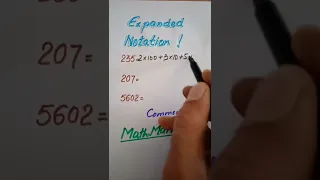 Expanded
Notation !
235=2×100+3×10+5×
207=
5602=
Comme
Math Man